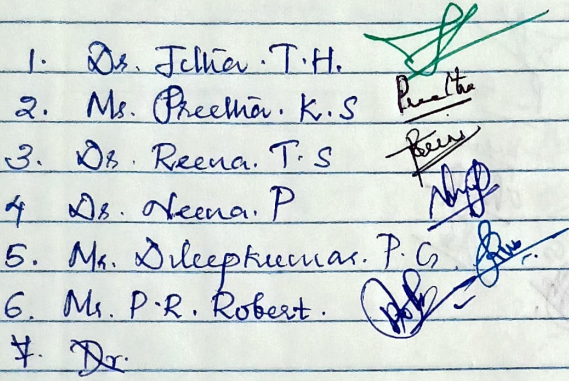 1. Dr. Jitha. T.H.
2. Ms. Preetha. K.S Preetha
3. Dr. Reena. T.S
4 Dr. Neena. P
5. Mr. Dileepkumar. P. G
6. Mr. P.R. Robert.
7. Dr.